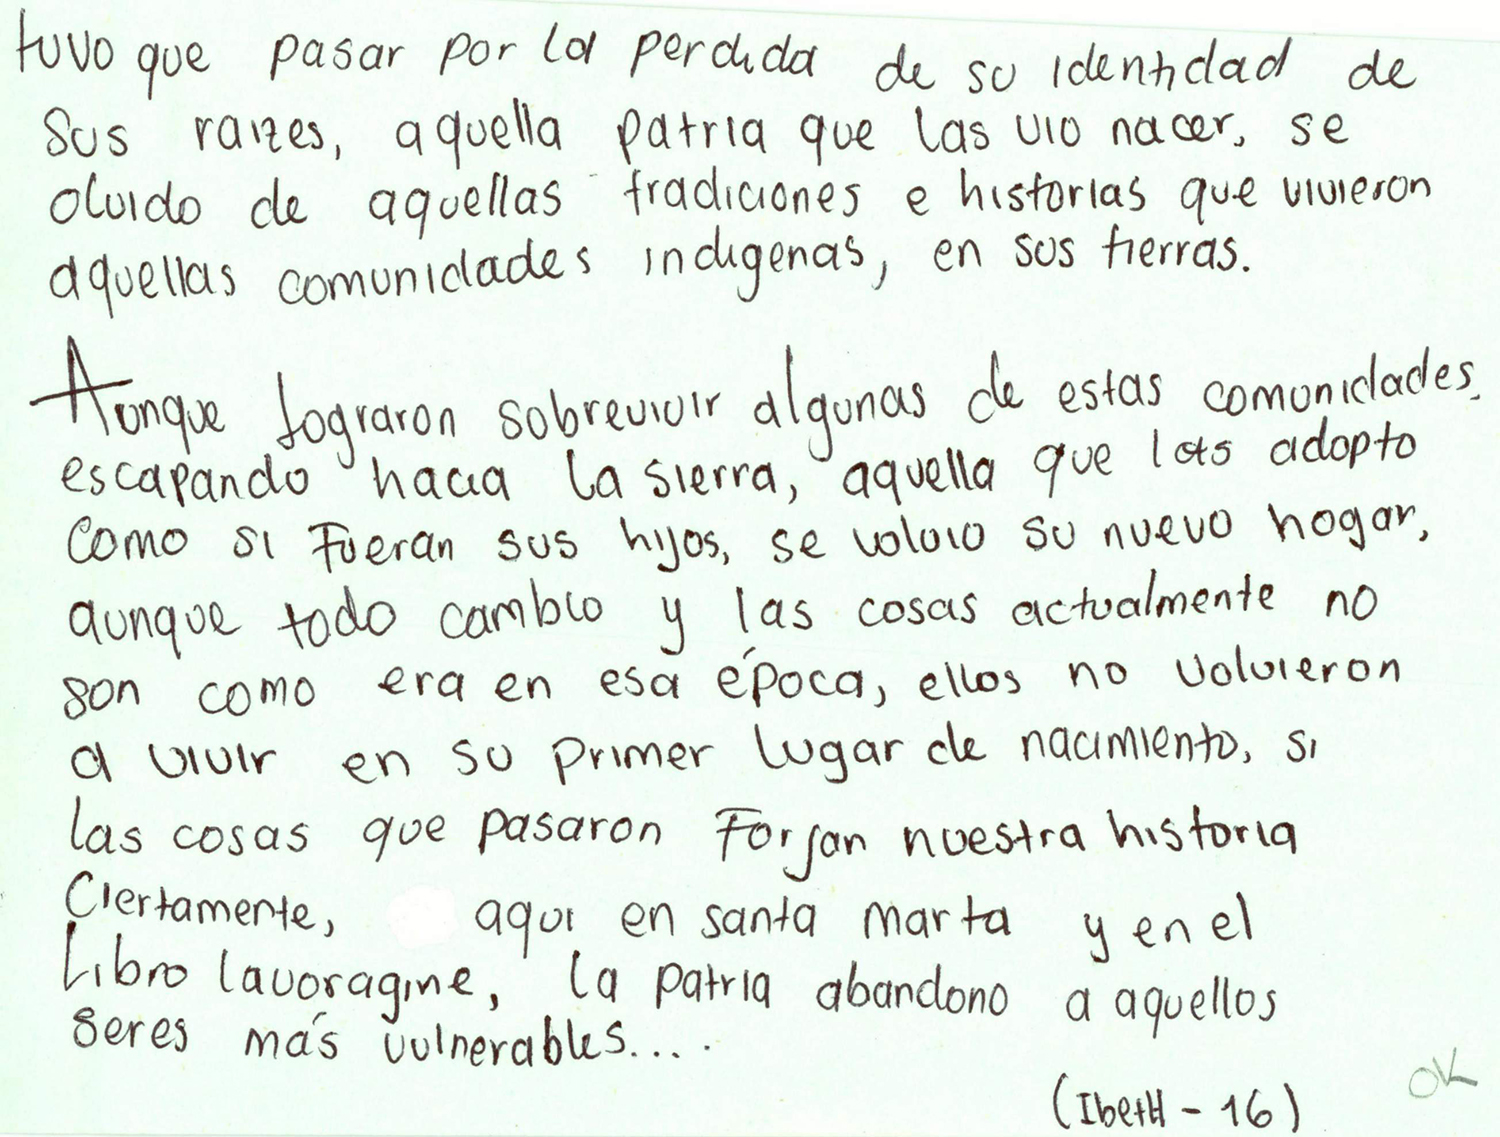 tuvo que pasar por la perdida de su identidad de
sus raizes, aquella patria que las vio nacer, se
olvido de aquellas tradiciones e historias que vivieron
aquellas comunidades indigenas, en sus tierras.
Aunque lograron sobrevivir algunas de estas comunidades.
escapando hacia la sierra, aquella que las adopto
como si Fueran sus hijos, se volvio su nuevo hogar,
aunque todo cambio y las cosas actualmente no
son como era en esa época, ellos no volvieron
a vivir en su primer lugar de nacimiento, si
las cosas que pasaron Forjan nuestra historia
Ciertamente, aqui en santa Marta y en el
Libro lavoragine, la patria abandono a aquellos
seres más vulnerables....
(IbetH - 16)
OK